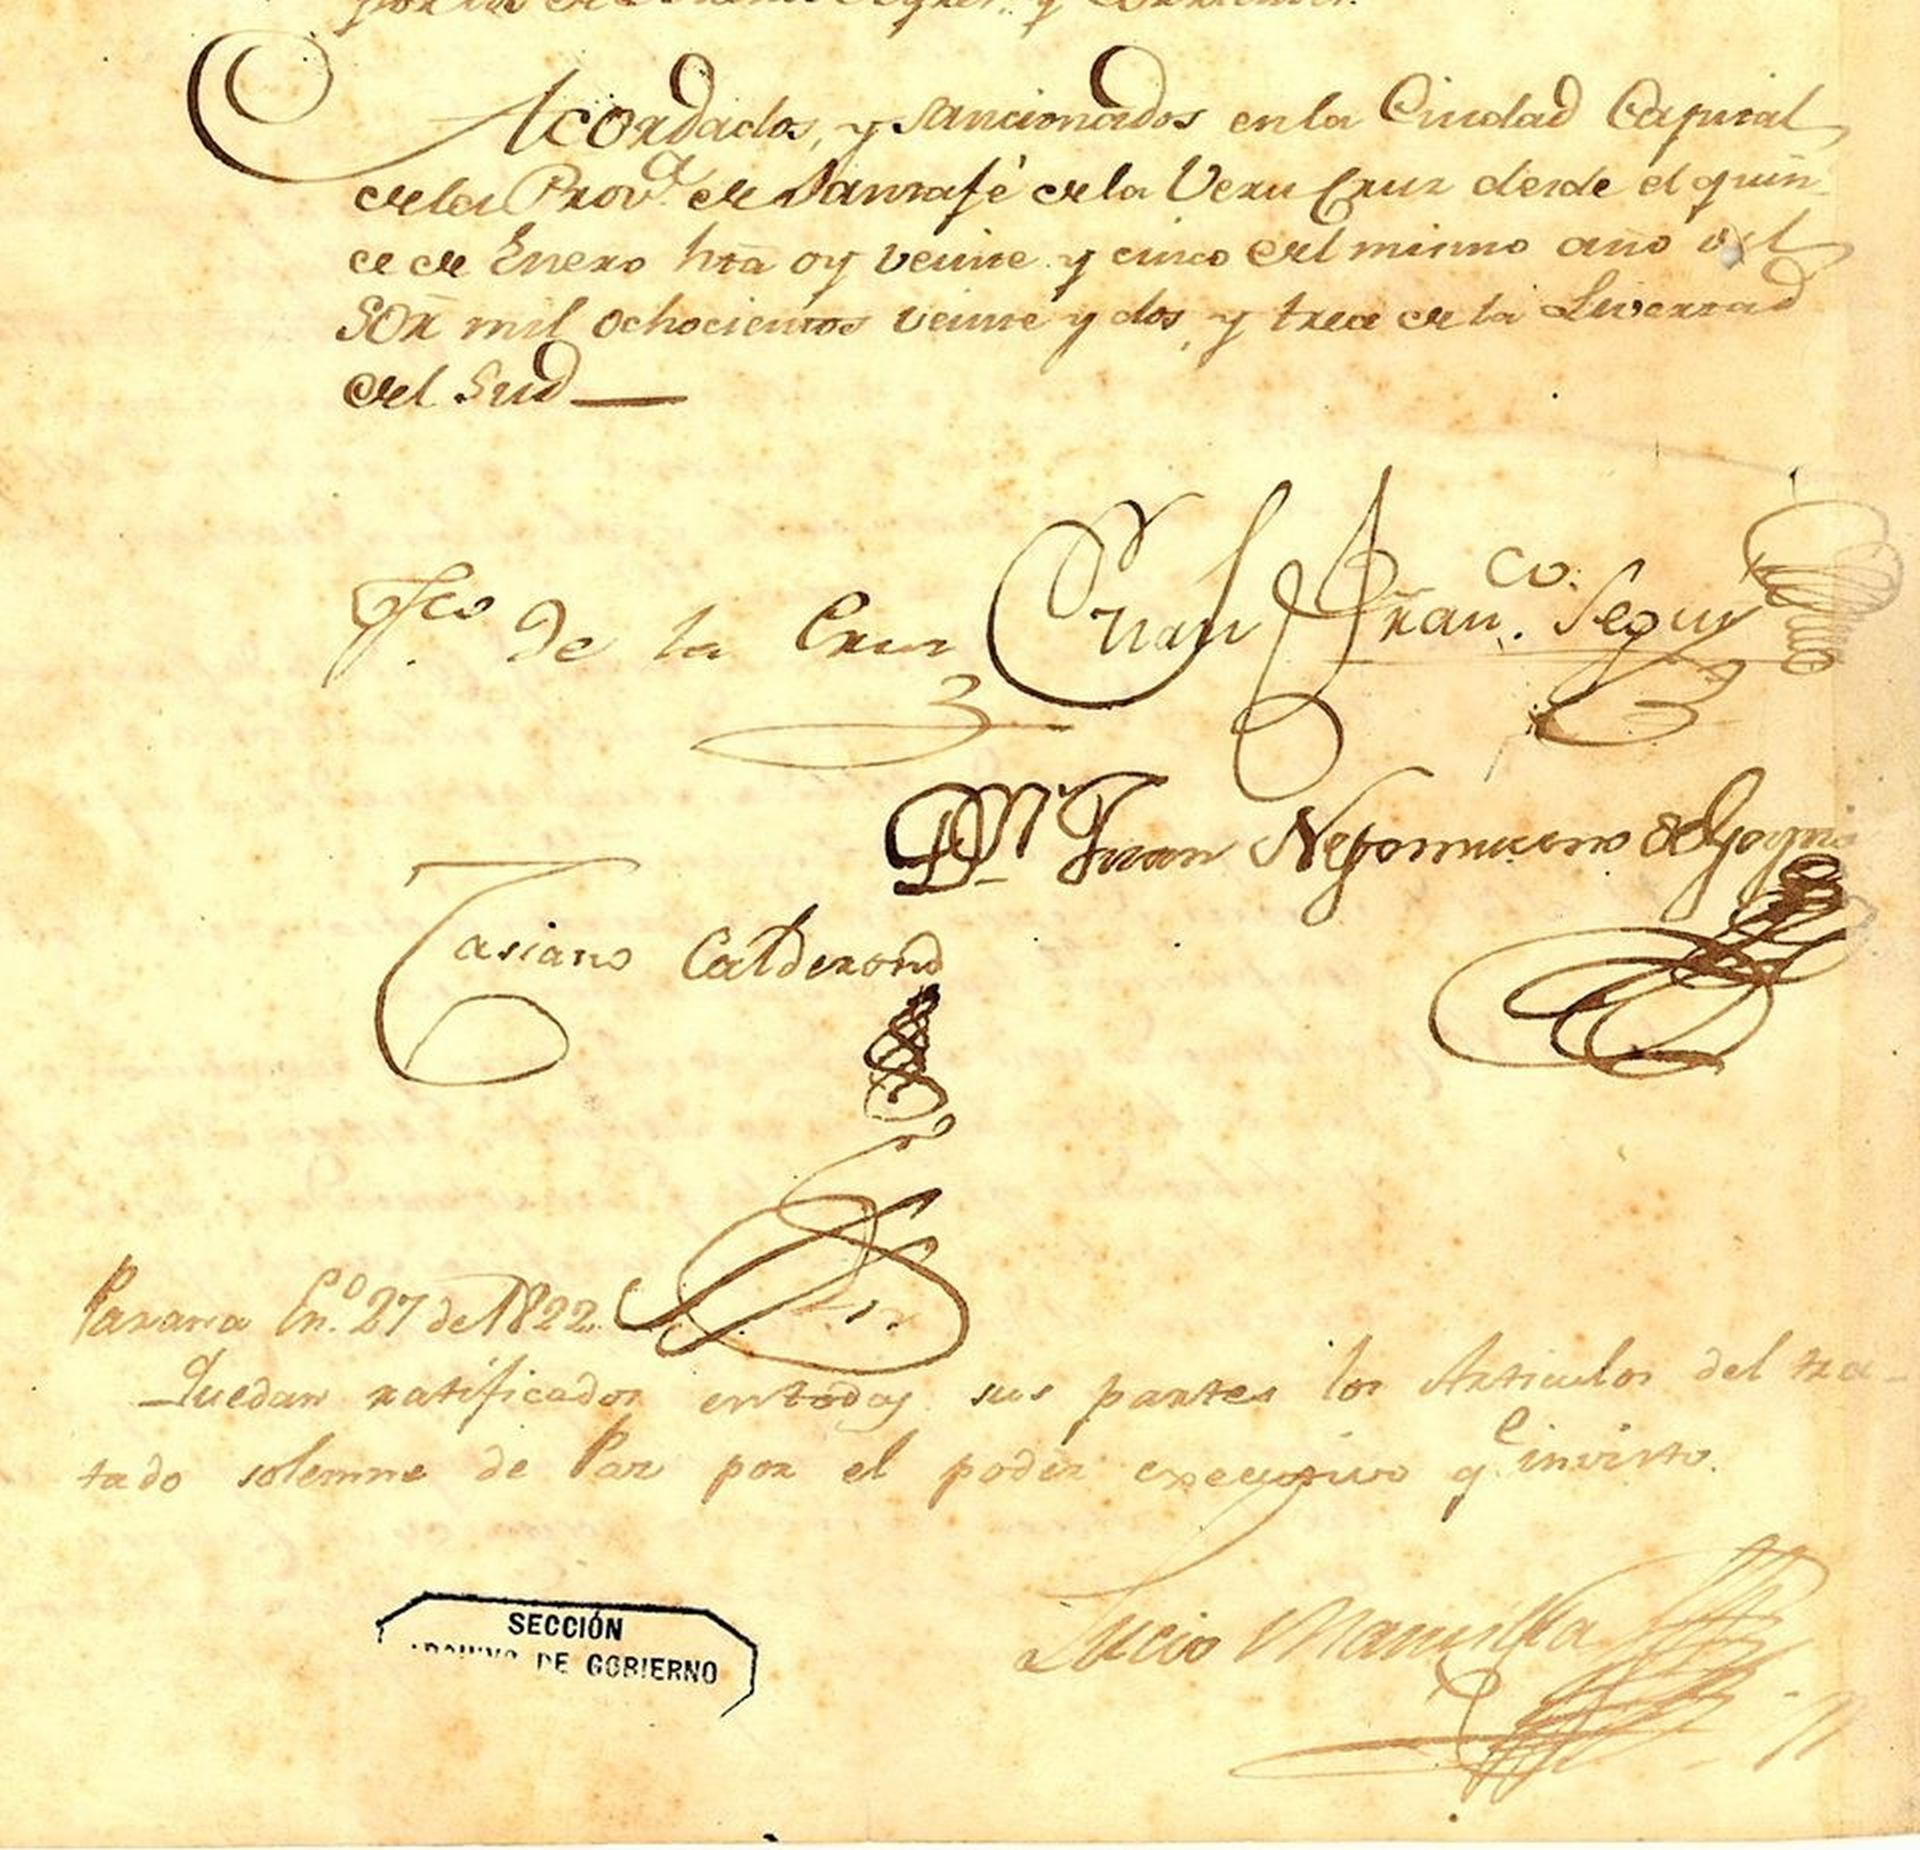 Acordados, y sancionados en la Ciudad Capital
de la Prov.ª de Santafé de la Vera Cruz desde el quin
ce de Enero hta oy veinte y cinco del mismo año del
SOR mil ochocientos veinte y dos, y trece de la Livertad
del Sud—
Fco de la Cruz Juan Fran.co Segui
D.or Juan Nepomuceno de Goytia
Casiano Calderon
Parana En.o 27 de 1822.
Quedan ratificados en todas sus partes los Articulos del tra-
tado solemne de Paz por el poder executivo q.e invisto.
SECCIÓN
ARCHIVO DE GOBIERNO
Lucio Mansilla